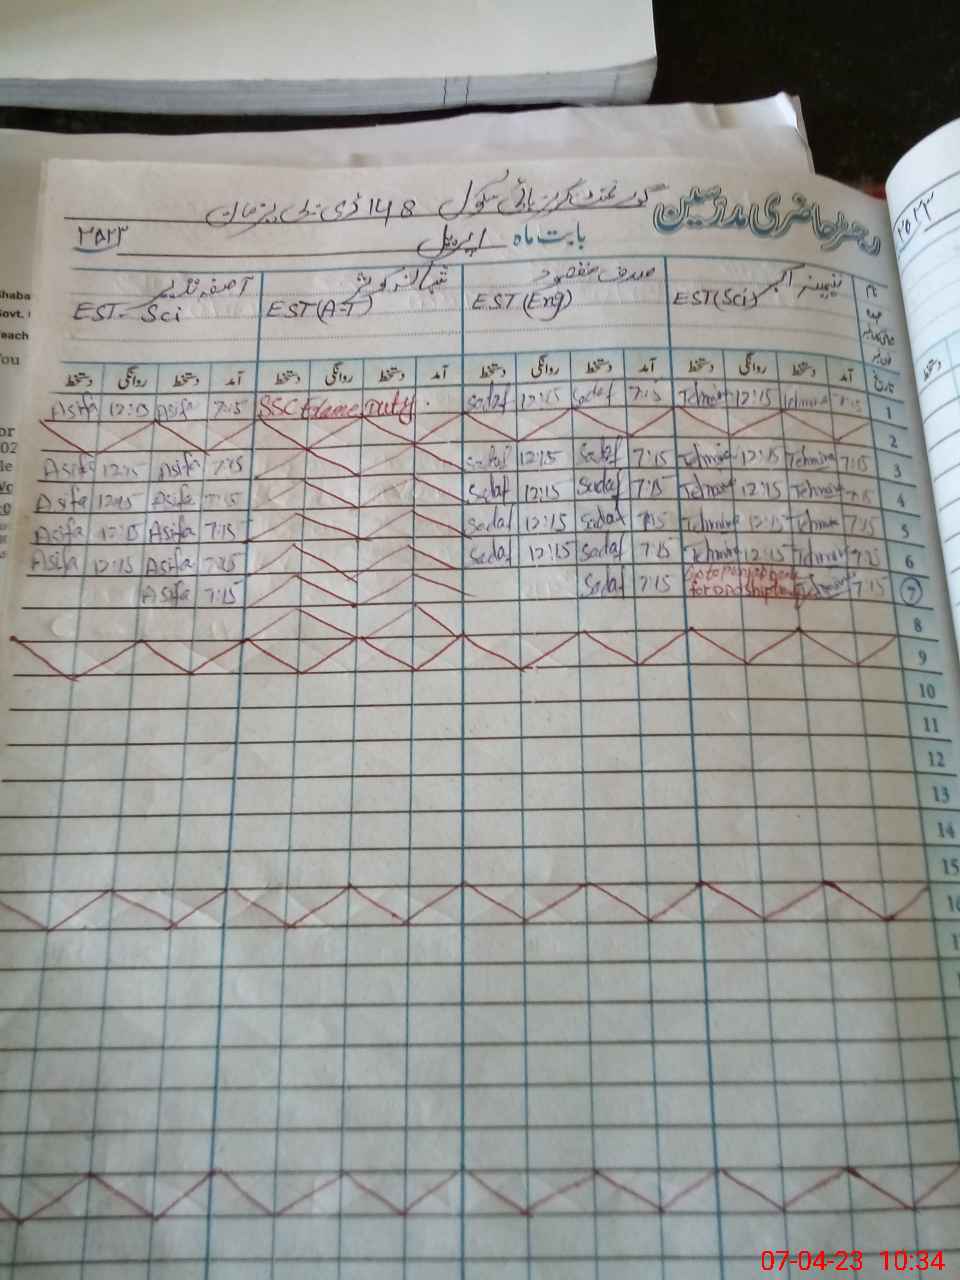 رجسٹر حاضری مدرسین
گورنمنٹ گرلز ہائی سکول 148 ڈی بی یزمان
بابت ماہ اپریل ۲۰۲۳
۲۰۲۳
نام
صدف مقصود
EST(Sci)
EST (Eng)
EST (A-T)
EST- Sci
تاریخ آمد دستخط روانگی دستخط آمد دستخط روانگی دستخط آمد دستخط روانگی دستخط آمد دستخط روانگی دستخط
Asifa 12:15 Asifa 7:15 SSC Exame Duty Sadaf 12:15 Sadaf 7:15 Tehmina 12:15 Tehmina 7:15 1
2
Asifa 12:15 Asifa 7:15 Sadaf 12:15 Sadaf 7:15 Tehmina 12:15 Tehmina 7:15 3
Asifa 12:15 Asifa 7:15 Sadaf 12:15 Sadaf 7:15 Tehmina 12:15 Tehmina 7:15 4
Asifa 12:15 Asifa 7:15 Sadaf 12:15 Sadaf 7:15 Tehmina 12:15 Tehmina 7:15 5
Asifa 12:15 Asifa 7:15 Sadaf 12:15 Sadaf 7:15 Tehmina 12:15 Tehmina 7:15 6
Asifa 7:15 Sadaf 7:15 Go to Punjab bank Tehmina 7:15 7
8
9
10
11
12
13
14
15
16
Govt.
You
07-04-23 10:34